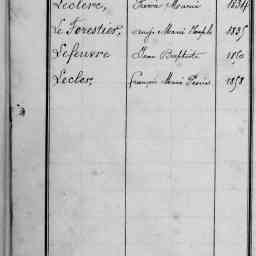 Leclerc, Pierre Marie 1834
Le Forestier, Ange Marie Joseph 1835
Lefeuvre Jean Baptiste 1850
Lecler, François Marie Pierre 1858